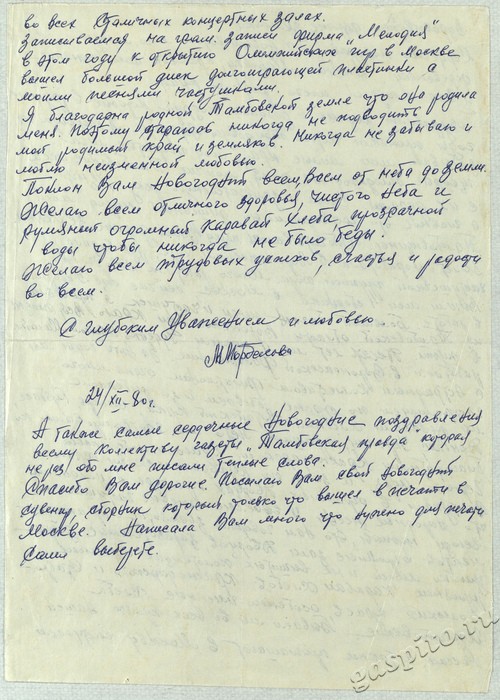 во всех столичных концертных залах.
Записываемся на грам. записи фирма „Мелодия"
в этом году к открытию Олимпийских игр в Москве
вышел большой диск долгоиграющей пластинки с
моими песнями частушками.
Я благодарна родной Тамбовской земле что она родила
меня. Поэтому стараюсь никогда не подводить
мой родимый край и земляков. Никогда не забываю и
люблю неизменной любовью.
Поклон Вам Новогодний всем, Всем от неба до земли.
Желаю всем отличного здоровья, чистого неба и
румяный огромный каравай хлеба, прозрачной
воды чтобы никогда не было беды.
Желаю всем трудовых успехов, счастья и радости
во всем.
С глубоким Уважением и любовью
24/XII-80г.
А также самые сердечные Новогодние поздравления
всему коллективу газеты „Тамбовская правда" которая
не раз обо мне писали теплые слова.
Спасибо Вам дорогие. Посылаю Вам свой Новогодний
сувенир, сборник который только что вышел в печати в
Москве. Написала Вам много что нужно для печати
сами выберете.
gaspito.ru